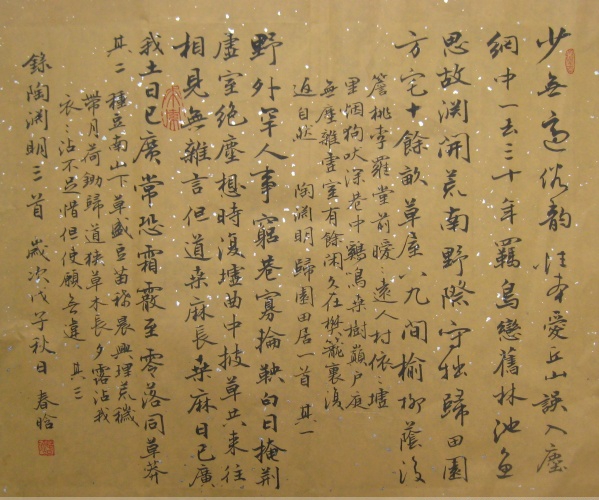 少無適俗韵性本愛丘山誤入塵
網中一去三十年羈鳥戀舊林池魚
思故渊開荒南野際守拙歸田園
方宅十餘畝草屋八九间榆柳蔭後
簷桃李羅堂前曖〻遠人村依〻墟
里烟狗吠深巷中鷄鳴桑樹巔户庭
無塵雜虚室有餘闲久在樊籠裏復
返自然 陶渊明歸園田居一首 其一
野外罕人事窮巷寡輪鞅白日掩荆
虚室絶塵想時復墟曲中披草共来往
相見無雜言但道桑麻長桑麻日已廣
我土日已廣常恐霜霰至零落同草莽
其二 種豆南山下草盛豆苗稀晨興理荒穢
帶月荷鋤歸道狭草木長夕露沾我
衣〻沾不足惜但使願無違 其三
錄陶渊明三首 歲次戊子秋日 春晗